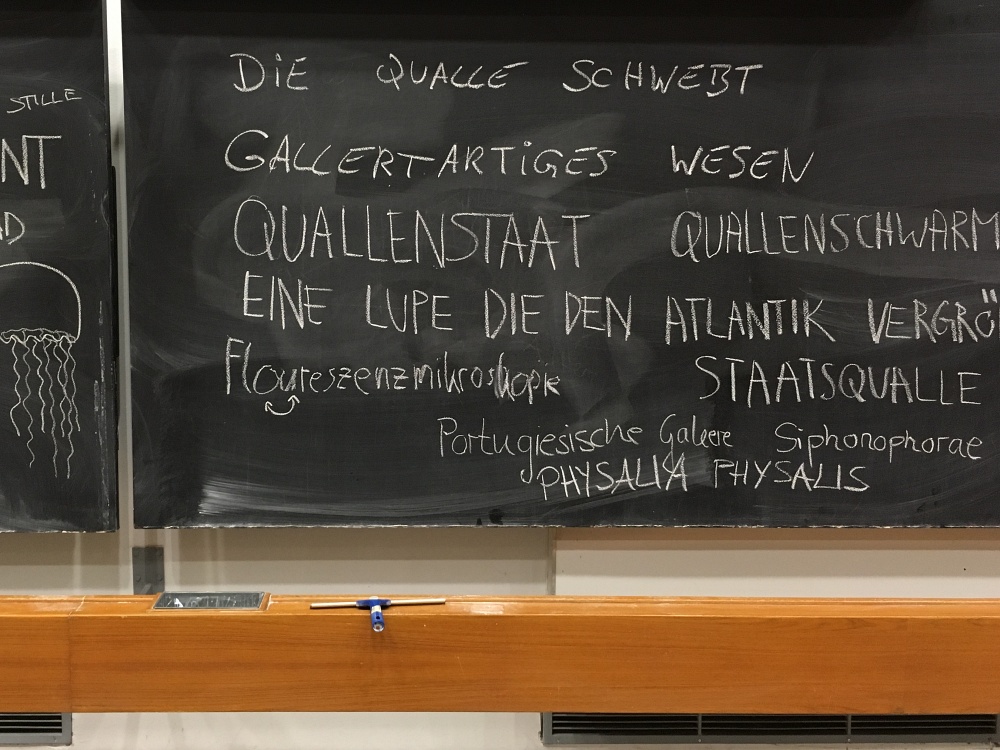 STILLE
NT
AD
DIE QUALLE SCHWEBT
GALLERTARTIGES WESEN
QUALLENSTAAT QUALLENSCHWARM
EINE LUPE DIE DEN ATLANTIK VERGRÖ
Floureszenzmikroskopie STAATSQUALLE
Portugiesische Galeere Siphonophorae
PHYSALIA PHYSALIS